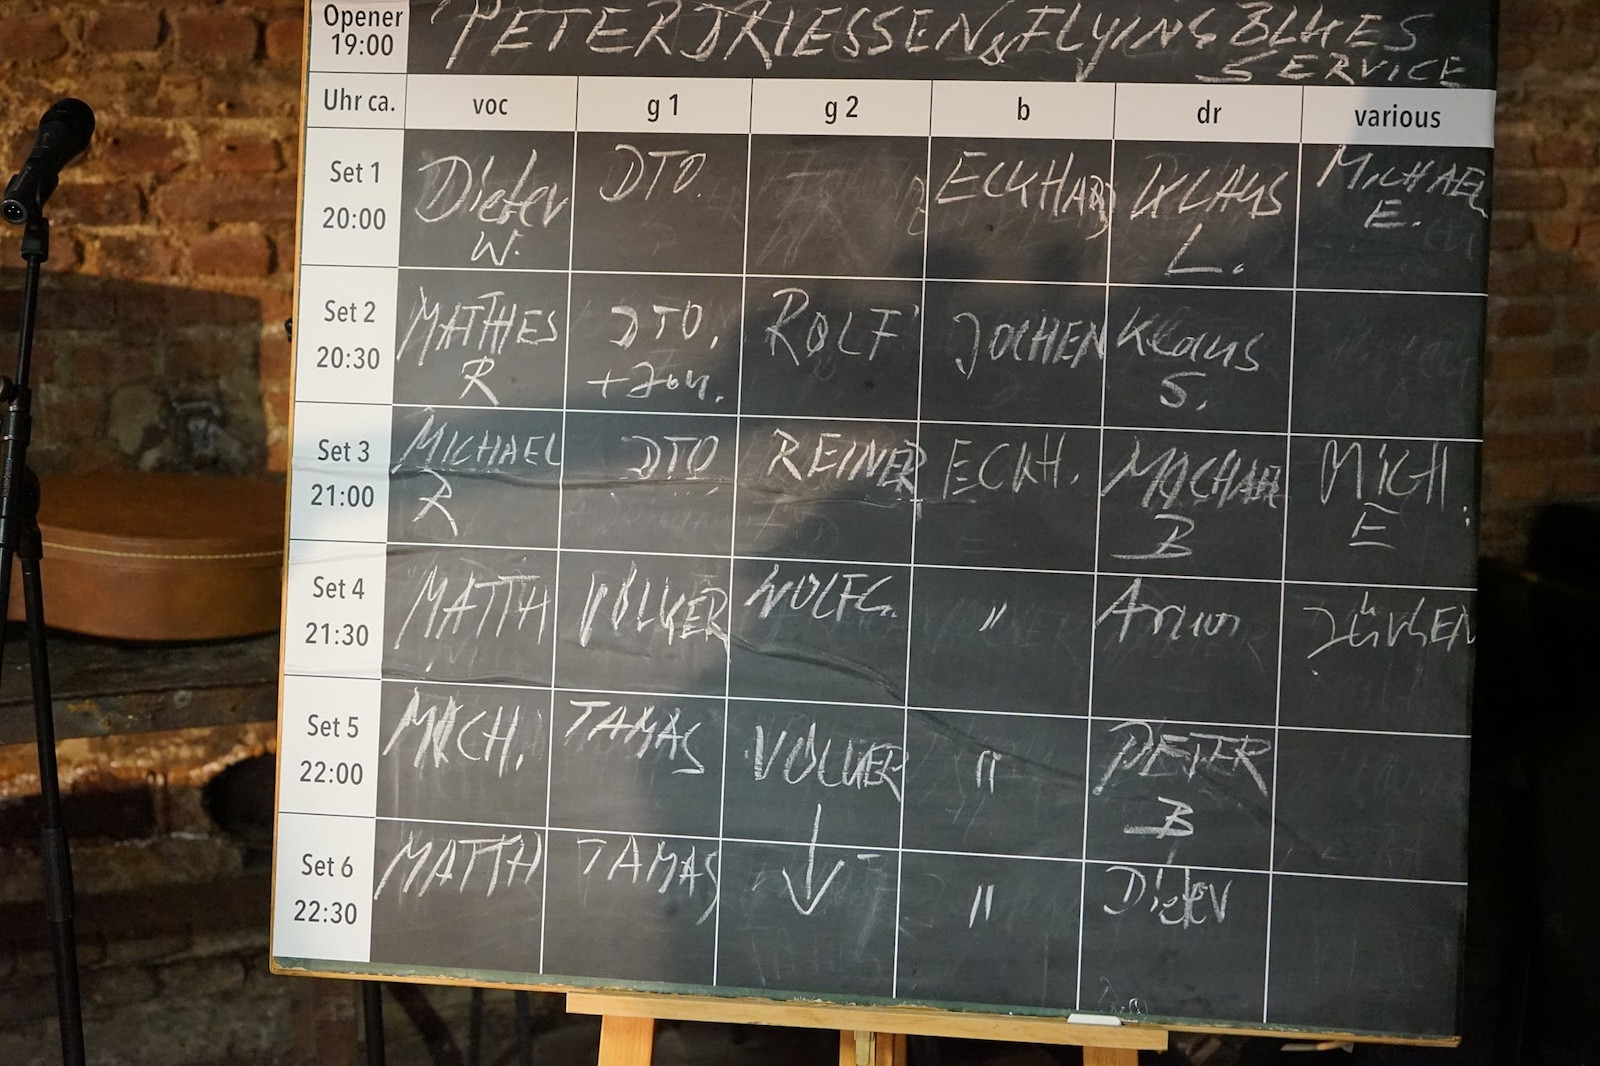 Opener 19:00 PETER DRIESSEN & FLYING BLUES SERVICE
Uhr ca. voc g 1 g 2 b dr various
Set 1 20:00 Dieter W. DTO. ECKHARD KLAUS L. MICHAEL E.
Set 2 20:30 MATTHES R DTO. + Jon. ROLF JOCHEN Klaus S.
Set 3 21:00 MICHAEL R DTO REINER ECKH. MICHAEL B MICH. E
Set 4 21:30 MATTH VOLKER WOLFG. " JÜRGEN
Set 5 22:00 MICH. TAMAS VOLKER " PETER B
Set 6 22:30 MATTH TAMAS ↓ " Dieter